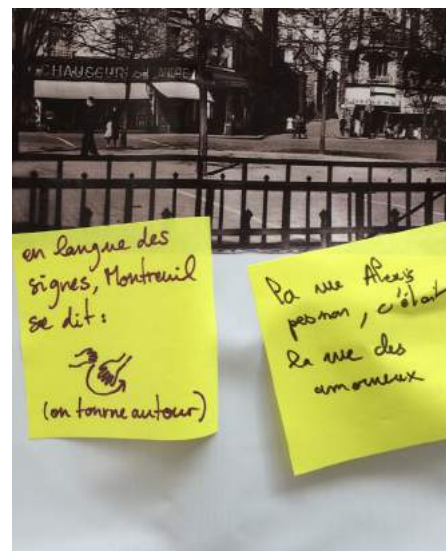 CHAUSSEUR
en langue des
signes, Montreuil
se dit :
(on tourne autour)
la rue Alexis
pesnon, c'était
la rue des
amoureux